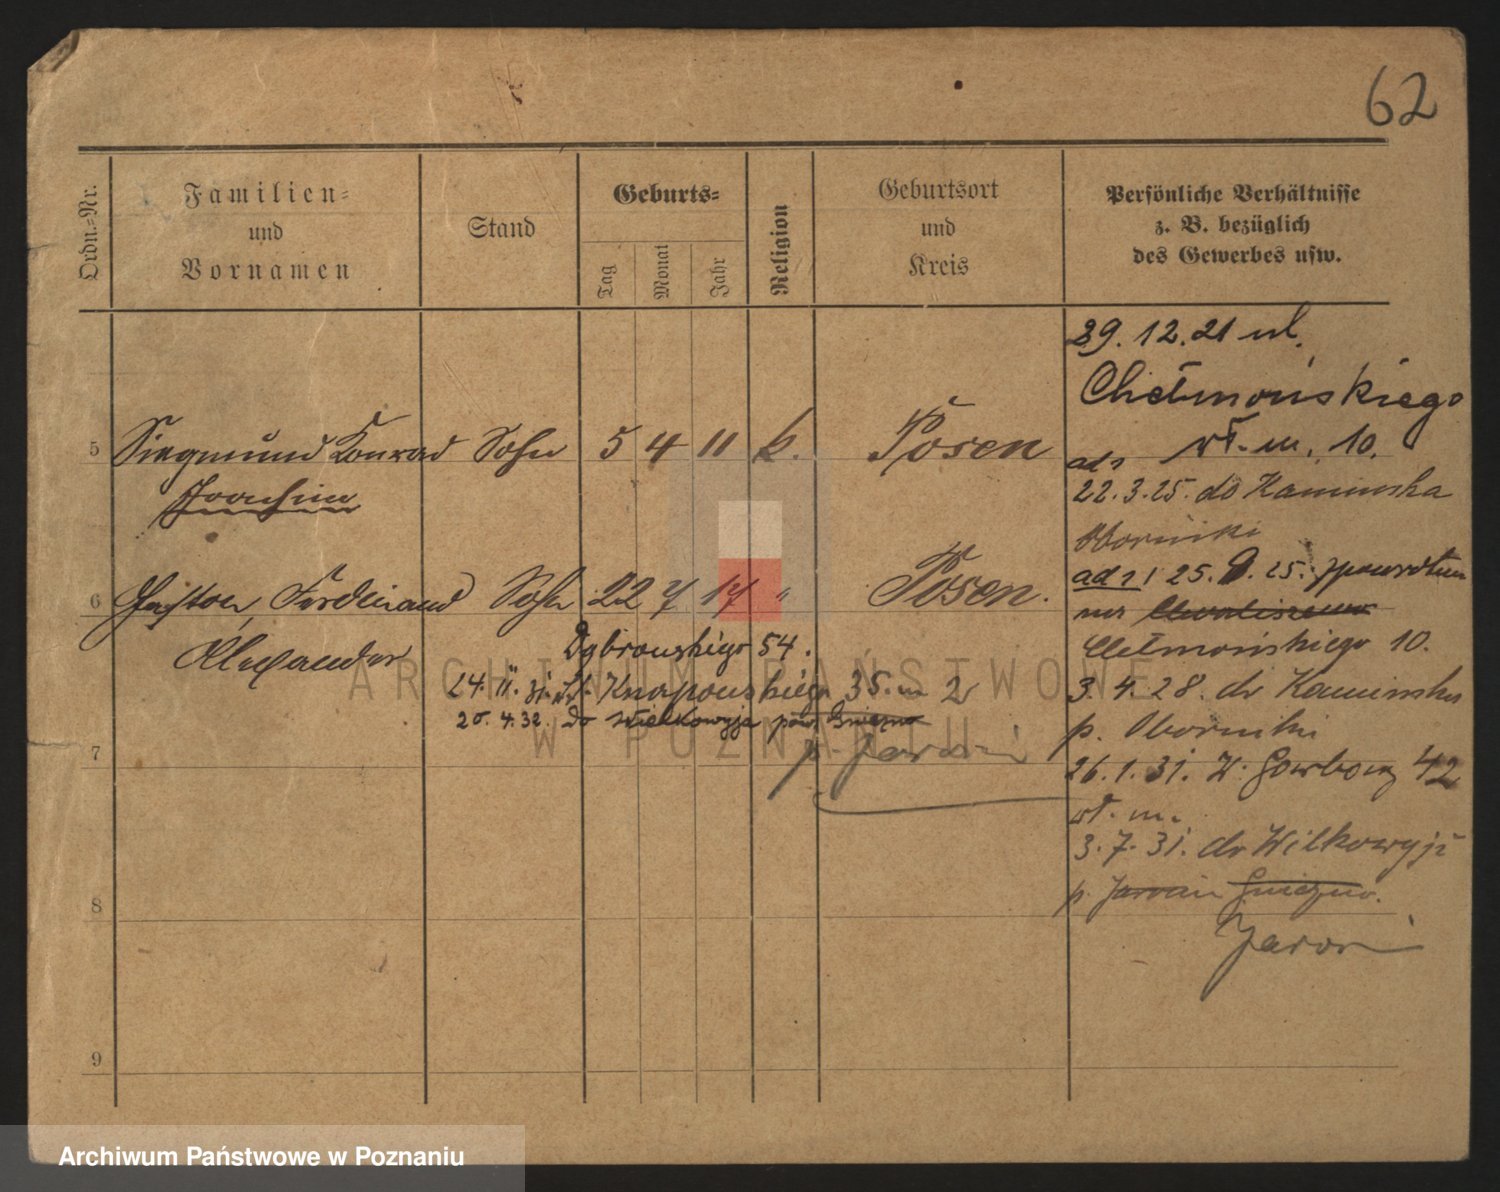 62
Ordn.-Nr.
Familien-
und
Vornamen
Stand
Geburts-
Tag
Monat
Jahr
Religion
Geburtsort
und
Kreis
Persönliche Verhältnisse
z. B. bezüglich
des Gewerbes usw.
29.12.21 ul.
Chełmońskiego
wł. m. 10.
5 Siegmund Konrad Sohn 5 4 11 k. Posen
Joachim
ad 1
22.3.25. do Kaminska
Oborniki
6 Gaston, Ferdinand Sohn 22 7 17 " Posen.
Alexander
ad 1/ 25. 9. 25. z powrotem
na
Chełmońskiego 10.
Dąbrowskiego 54.
24. II. 31. wł. Knapowskiego 35. m 2
20. 4. 32. do Wilkowyja pow. Gniezno
p. Jarocin
3. 4. 28. do Kaminska
p. Oborniki
26. 1. 31. W. Garbary 42
wł. m.
3. 7. 31. do Wilkowyji
p. Jarocin Gniezno.
Jarocin
7
8
9
ARCHIWUM PAŃSTWOWE
W POZNANIU
Archiwum Państwowe w Poznaniu